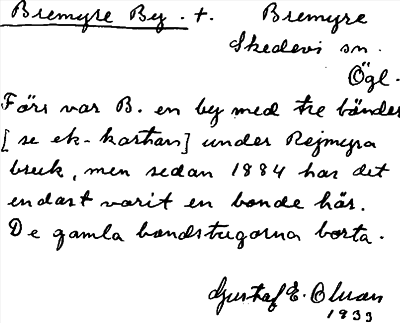 Bremyre By. +. Bremyre
Skedevi sn.
Ögl.
Förr var B. en by med tre bönder
[se ek-kartan] under Rejmyra
bruk, men sedan 1884 har det
endast varit en bonde här.
De gamla bondstugorna borta.
Gustaf E. Olsson
1933